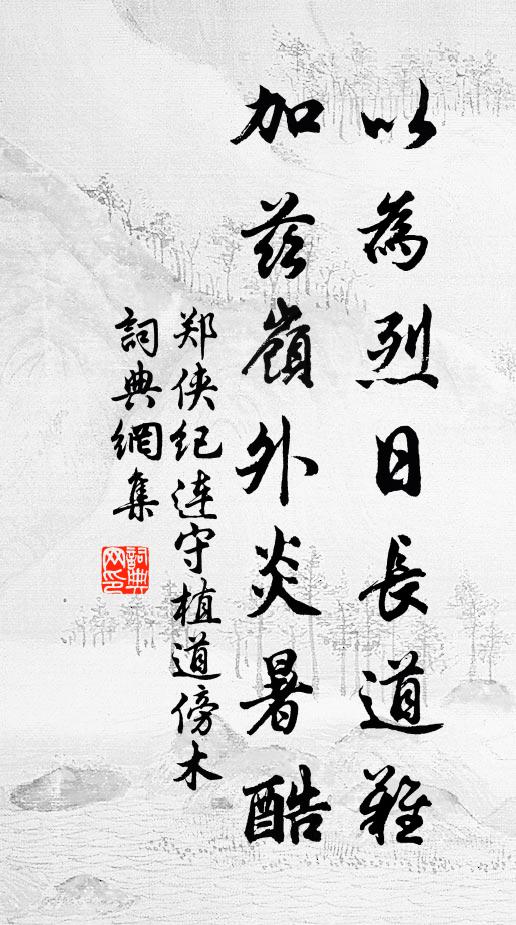 以為烈日長道難
加茲嶺外炎暑酷
郑侠纪連守植道傍木
詞典網集
詞典网印